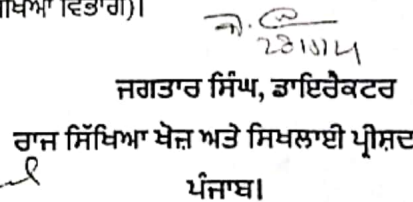 ਵਿਭਾਗ)।
ਜਗਤਾਰ ਸਿੰਘ, ਡਾਇਰੈਕਟਰ
ਰਾਜ ਸਿੱਖਿਆ ਖੋਜ ਅਤੇ ਸਿਖਲਾਈ ਪ੍ਰੀਸ਼ਦ
ਪੰਜਾਬ।